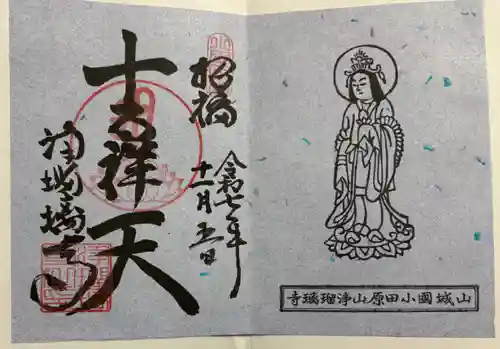 山城國小田原山淨瑠璃寺
招福
令和七年
十一月五日
吉祥天
浄瑠璃寺